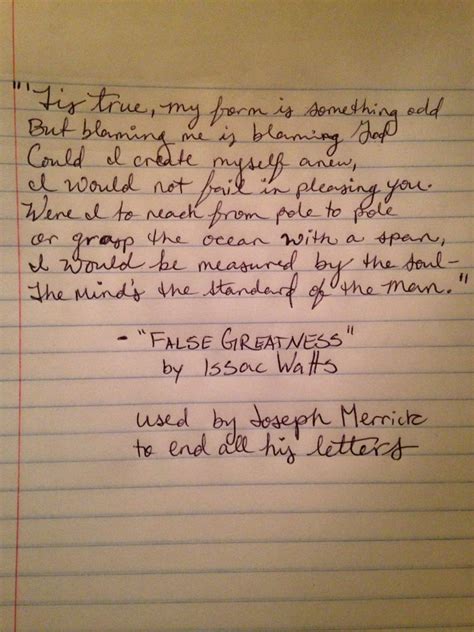 "'Tis true, my form is something odd
But blaming me is blaming God
Could I create myself anew,
I would not fail in pleasing you.
Were I to reach from pole to pole
or grasp the ocean with a span,
I would be measured by the soul-
The Mind's the standard of the man."
- "FALSE GREATNESS"
by Issac Watts
used by Joseph Merrick
to end all his letters